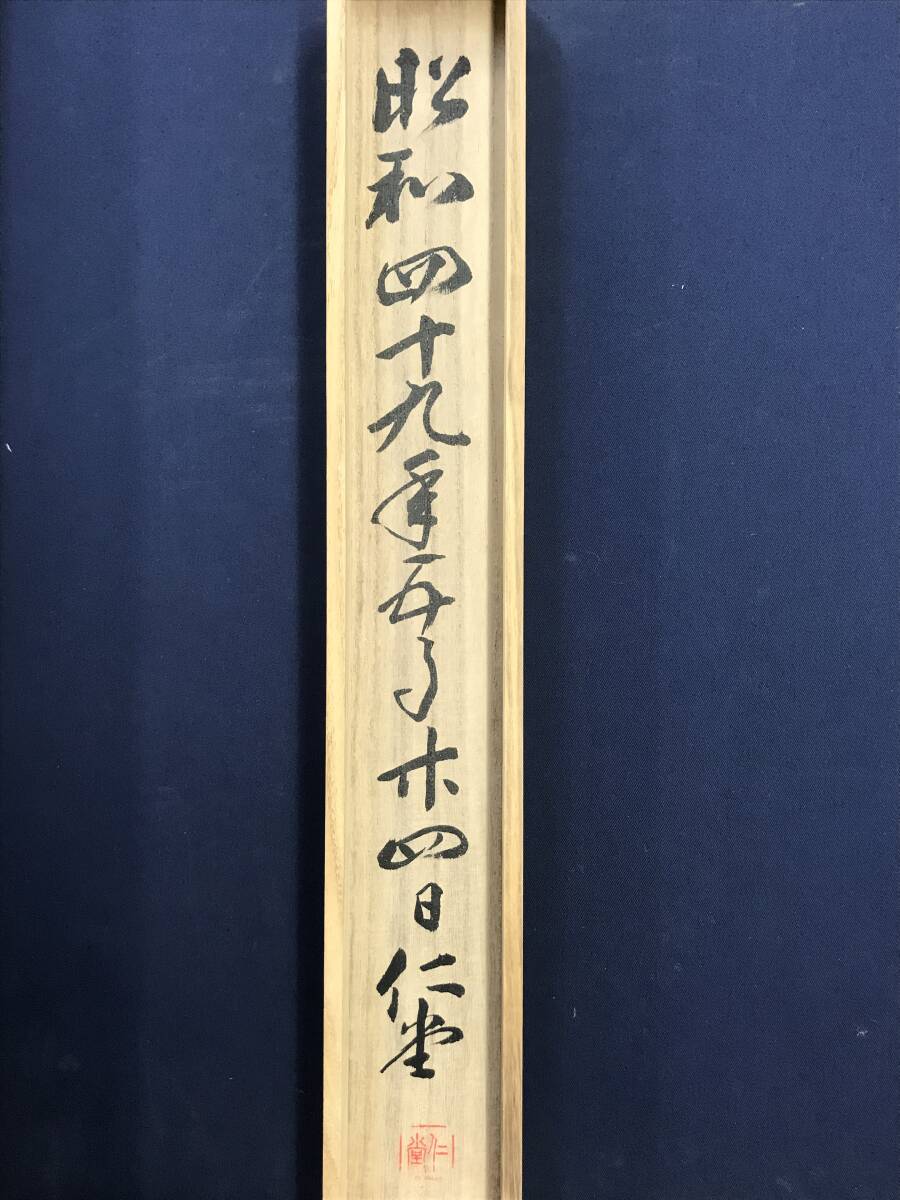 昭和四十九年五月廿四日仁堂
仁堂